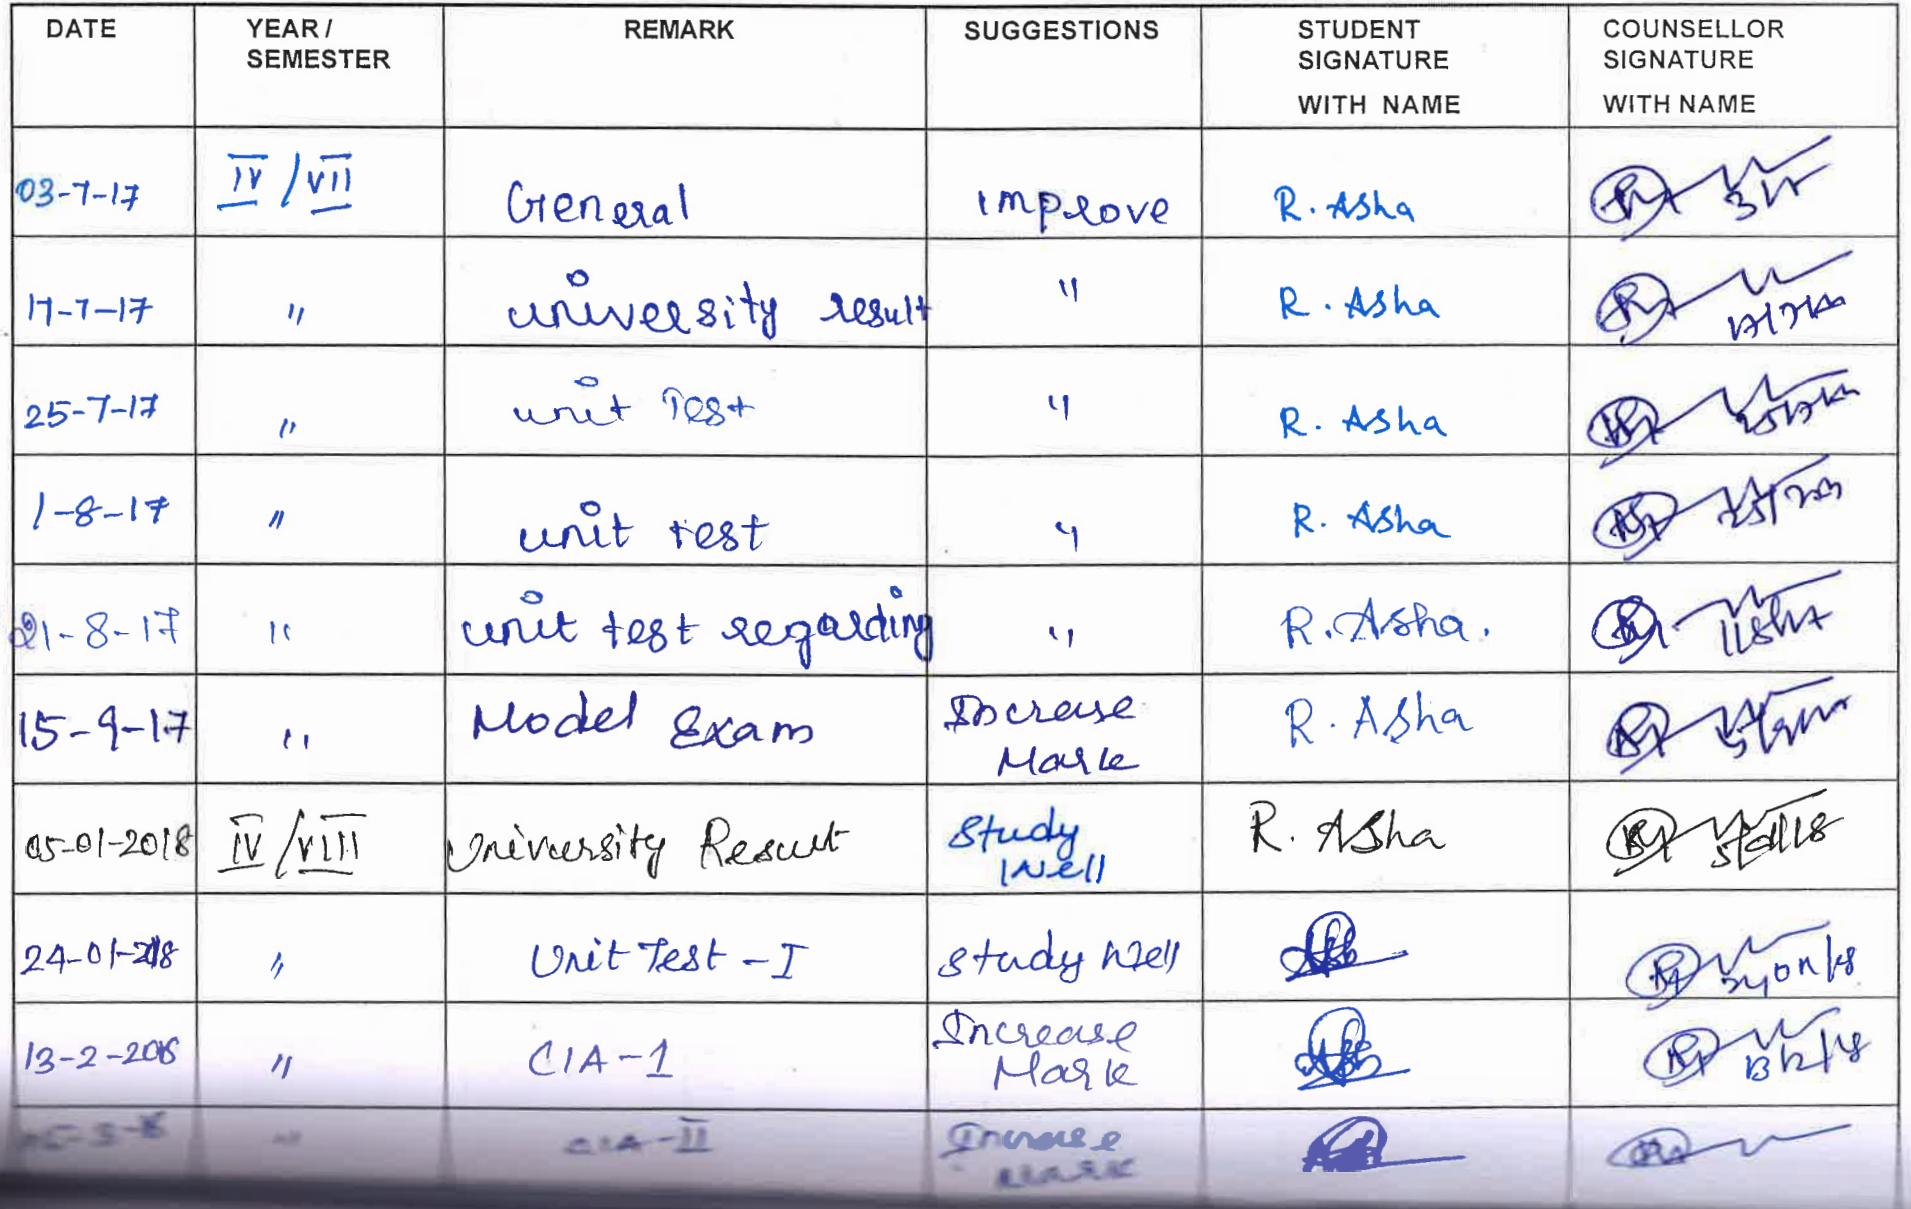 DATE YEAR / SEMESTER REMARK SUGGESTIONS STUDENT SIGNATURE WITH NAME COUNSELLOR SIGNATURE WITH NAME
03-7-17 IV / VII General improve R. Asha
17-7-17 " university result " R. Asha
25-7-17 " unit Test " R. Asha
1-8-17 " unit test " R. Asha
21-8-17 " unit test regarding " R. Asha.
15-9-17 " Model Exam Increase Mark R. Asha
05-01-2018 IV / VIII University Result Study Well R. Asha 5/01/18
24-01-2018 " Unit Test - I study Well
13-2-2018 " CIA-1 Increase Mark 13/2/18
" CIA-II Increase Mark